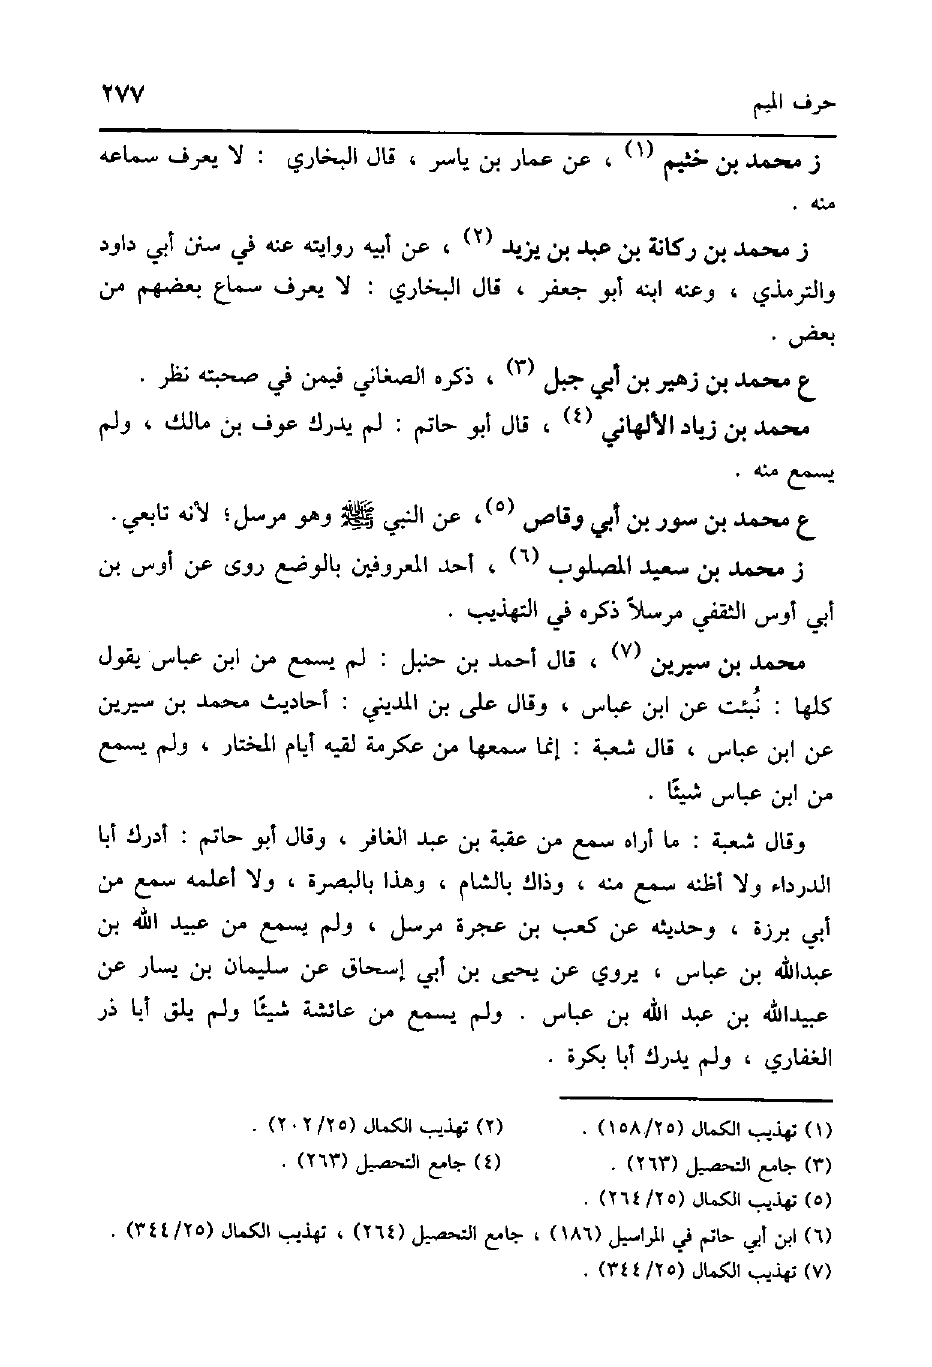 حرف الميم ٢٧٧
ز محمد بن خثيم (١) ، عن عمار بن ياسر ، قال البخاري : لا يعرف سماعه
منه .
ز محمد بن ركانة بن عبد بن يزيد (٢) ، عن أبيه روايته عنه في سنن أبي داود
والترمذي ، وعنه ابنه أبو جعفر ، قال البخاري : لا يعرف سماع بعضهم من
بعض .
ع محمد بن زهير بن أبي جبل (٣) ، ذكره الصغاني فيمن في صحبته نظر .
محمد بن زياد الألهاني (٤) ، قال أبو حاتم : لم يدرك عوف بن مالك ، ولم
يسمع منه .
ع محمد بن سور بن أبي وقاص (٥)، عن النبي ﷺ وهو مرسل؛ لأنه تابعي.
ز محمد بن سعيد المصلوب (٦) ، أحد المعروفين بالوضع روى عن أوس بن
أبي أوس الثقفي مرسلاً ذكره في التهذيب .
محمد بن سيرين (٧) ، قال أحمد بن حنبل : لم يسمع من ابن عباس يقول
كلها : نُبئت عن ابن عباس ، وقال على بن المديني : أحاديث محمد بن سيرين
عن ابن عباس ، قال شعبة : إنما سمعها من عكرمة لقيه أيام المختار ، ولم يسمع
من ابن عباس شيئًا .
وقال شعبة : ما أراه سمع من عقبة بن عبد الغافر ، وقال أبو حاتم : أدرك أبا
الدرداء ولا أظنه سمع منه ، وذاك بالشام ، وهذا بالبصرة ، ولا أعلمه سمع من
أبي برزة ، وحديثه عن كعب بن عجرة مرسل ، ولم يسمع من عبيد الله بن
عبدالله بن عباس ، يروي عن يحيى بن أبي إسحاق عن سليمان بن يسار عن
عبيدالله بن عبد الله بن عباس . ولم يسمع من عائشة شيئًا ولم يلق أبا ذر
الغفاري ، ولم يدرك أبا بكرة .
(١) تهذيب الكمال (١٥٨/٢٥) . (٢) تهذيب الكمال (٢٠٢/٢٥) .
(٣) جامع التحصيل (٢٦٣) . (٤) جامع التحصيل (٢٦٣) .
(٥) تهذيب الكمال (٢٦٤/٢٥) .
(٦) ابن أبي حاتم في المراسيل (١٨٦) ، جامع التحصيل (٢٦٤) ، تهذيب الكمال (٣٤٤/٢٥) .
(٧) تهذيب الكمال (٣٤٤/٢٥) .